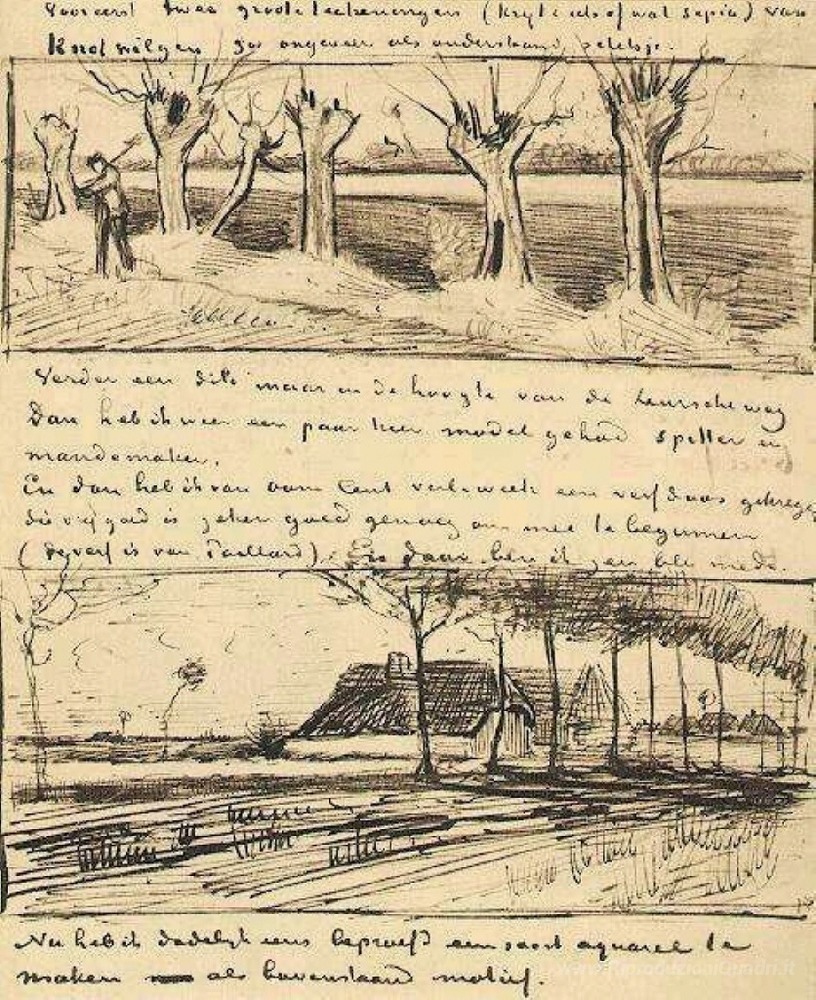 Vooreerst twee groote teekeningen (kryt & alsof wat sepia) van
Knotwilgen zoo ongeveer als onderstaand schetsje.
Verder een dito maar in de hoogte van de Leurscheweg
Dan heb ik weer een paar keer model gehad spitter en
mandemaker.
En dan heb ik van oom Cent verl. week een verfdoos gekregen
die vrij goed is zeker goed genoeg om mee te beginnen
(de verf is van Paillard). En daar ben ik zeer blij mede.
Nu heb ik dadelijk eens beproefd een soort aquarel te
maken als bovenstaand motief.